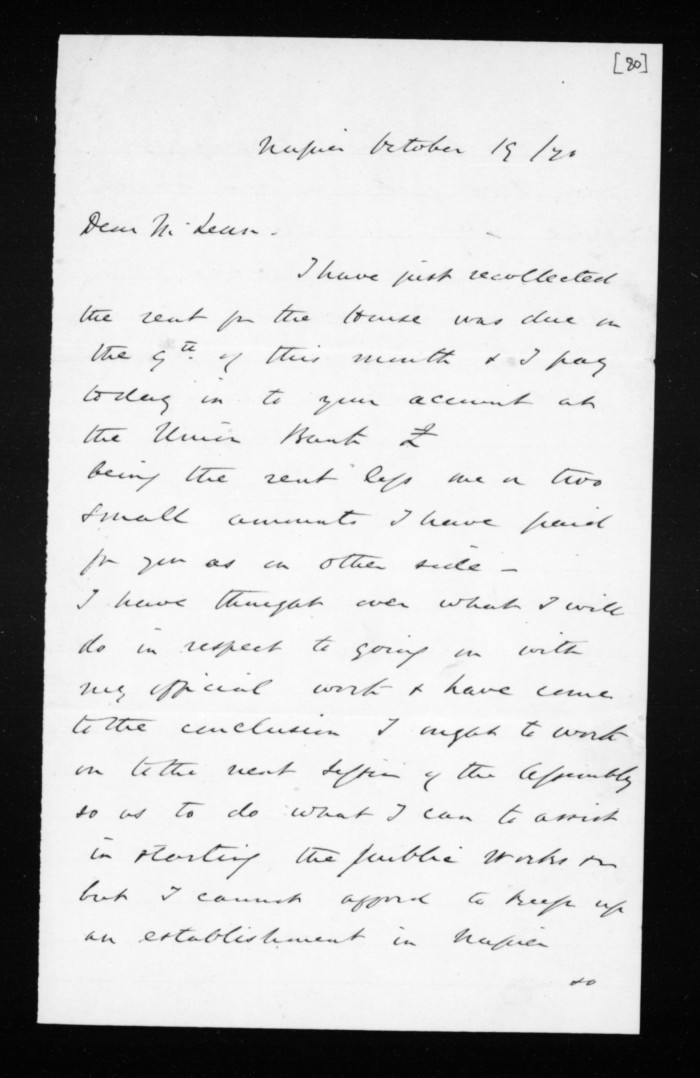 [80]
Napier October 19/70
Dear McLean.
I have just recollected
the rent for the House was due on
the 9th. of this month & I pay
today in to your account at
the Union Bank £
being the rent less one or two
small amounts I have paid
for you as on other side –
I have thought over what I will
do in respect to going on with
my official work & have come
to the conclusion I ought to work
on to the next Session of the Assembly
so as to do what I can to assist
in starting the public works
but I cannot afford to keep up
an establishment in Napier
so